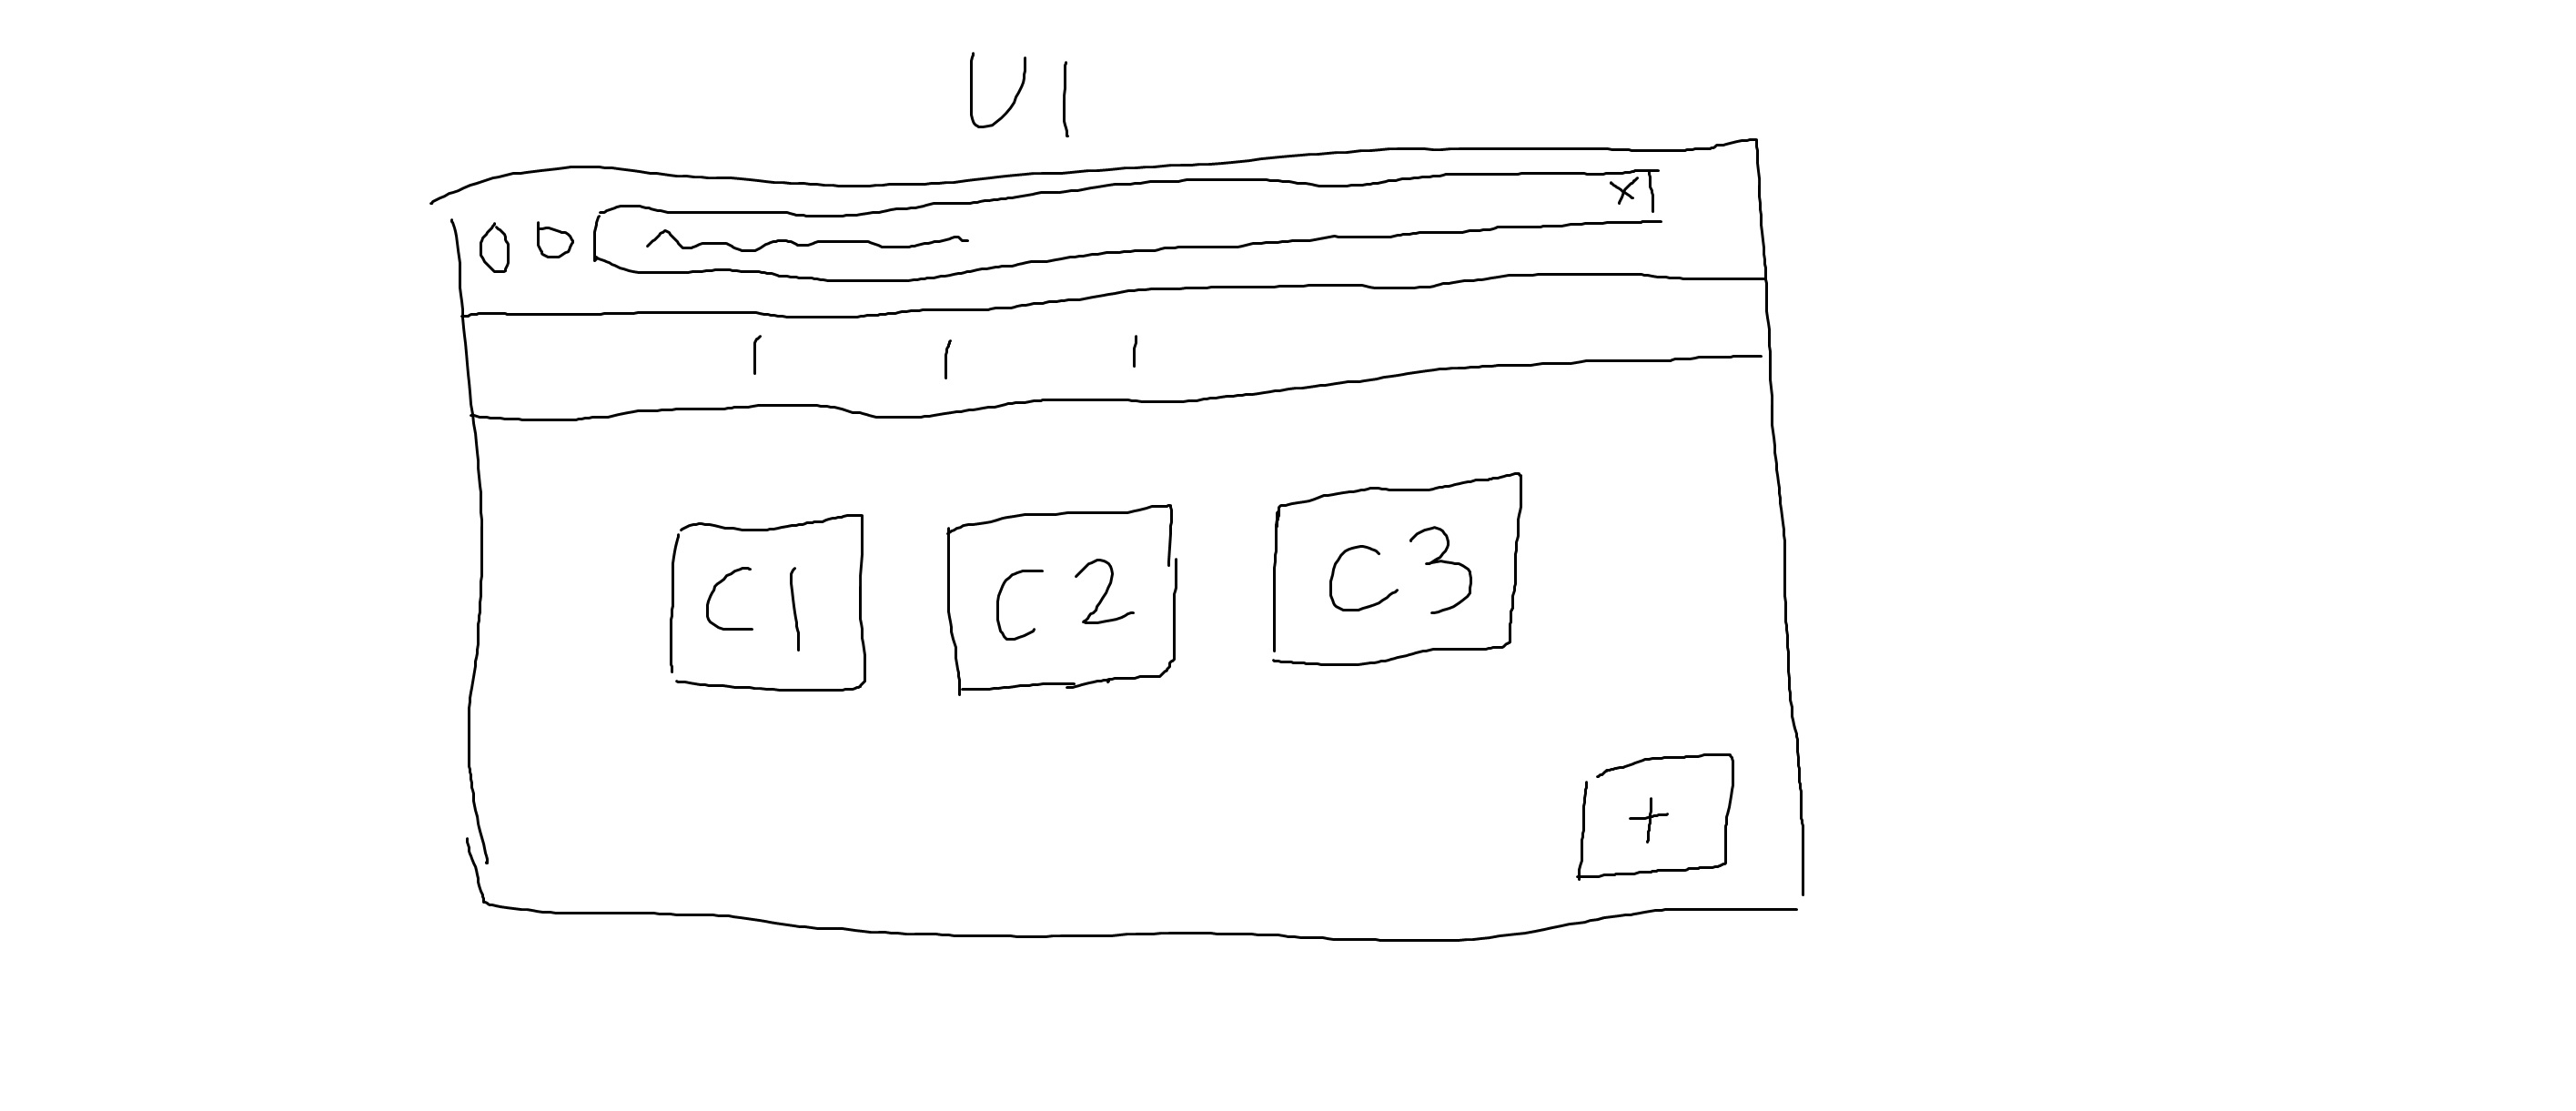 UI
X
C1 C2 C3
+